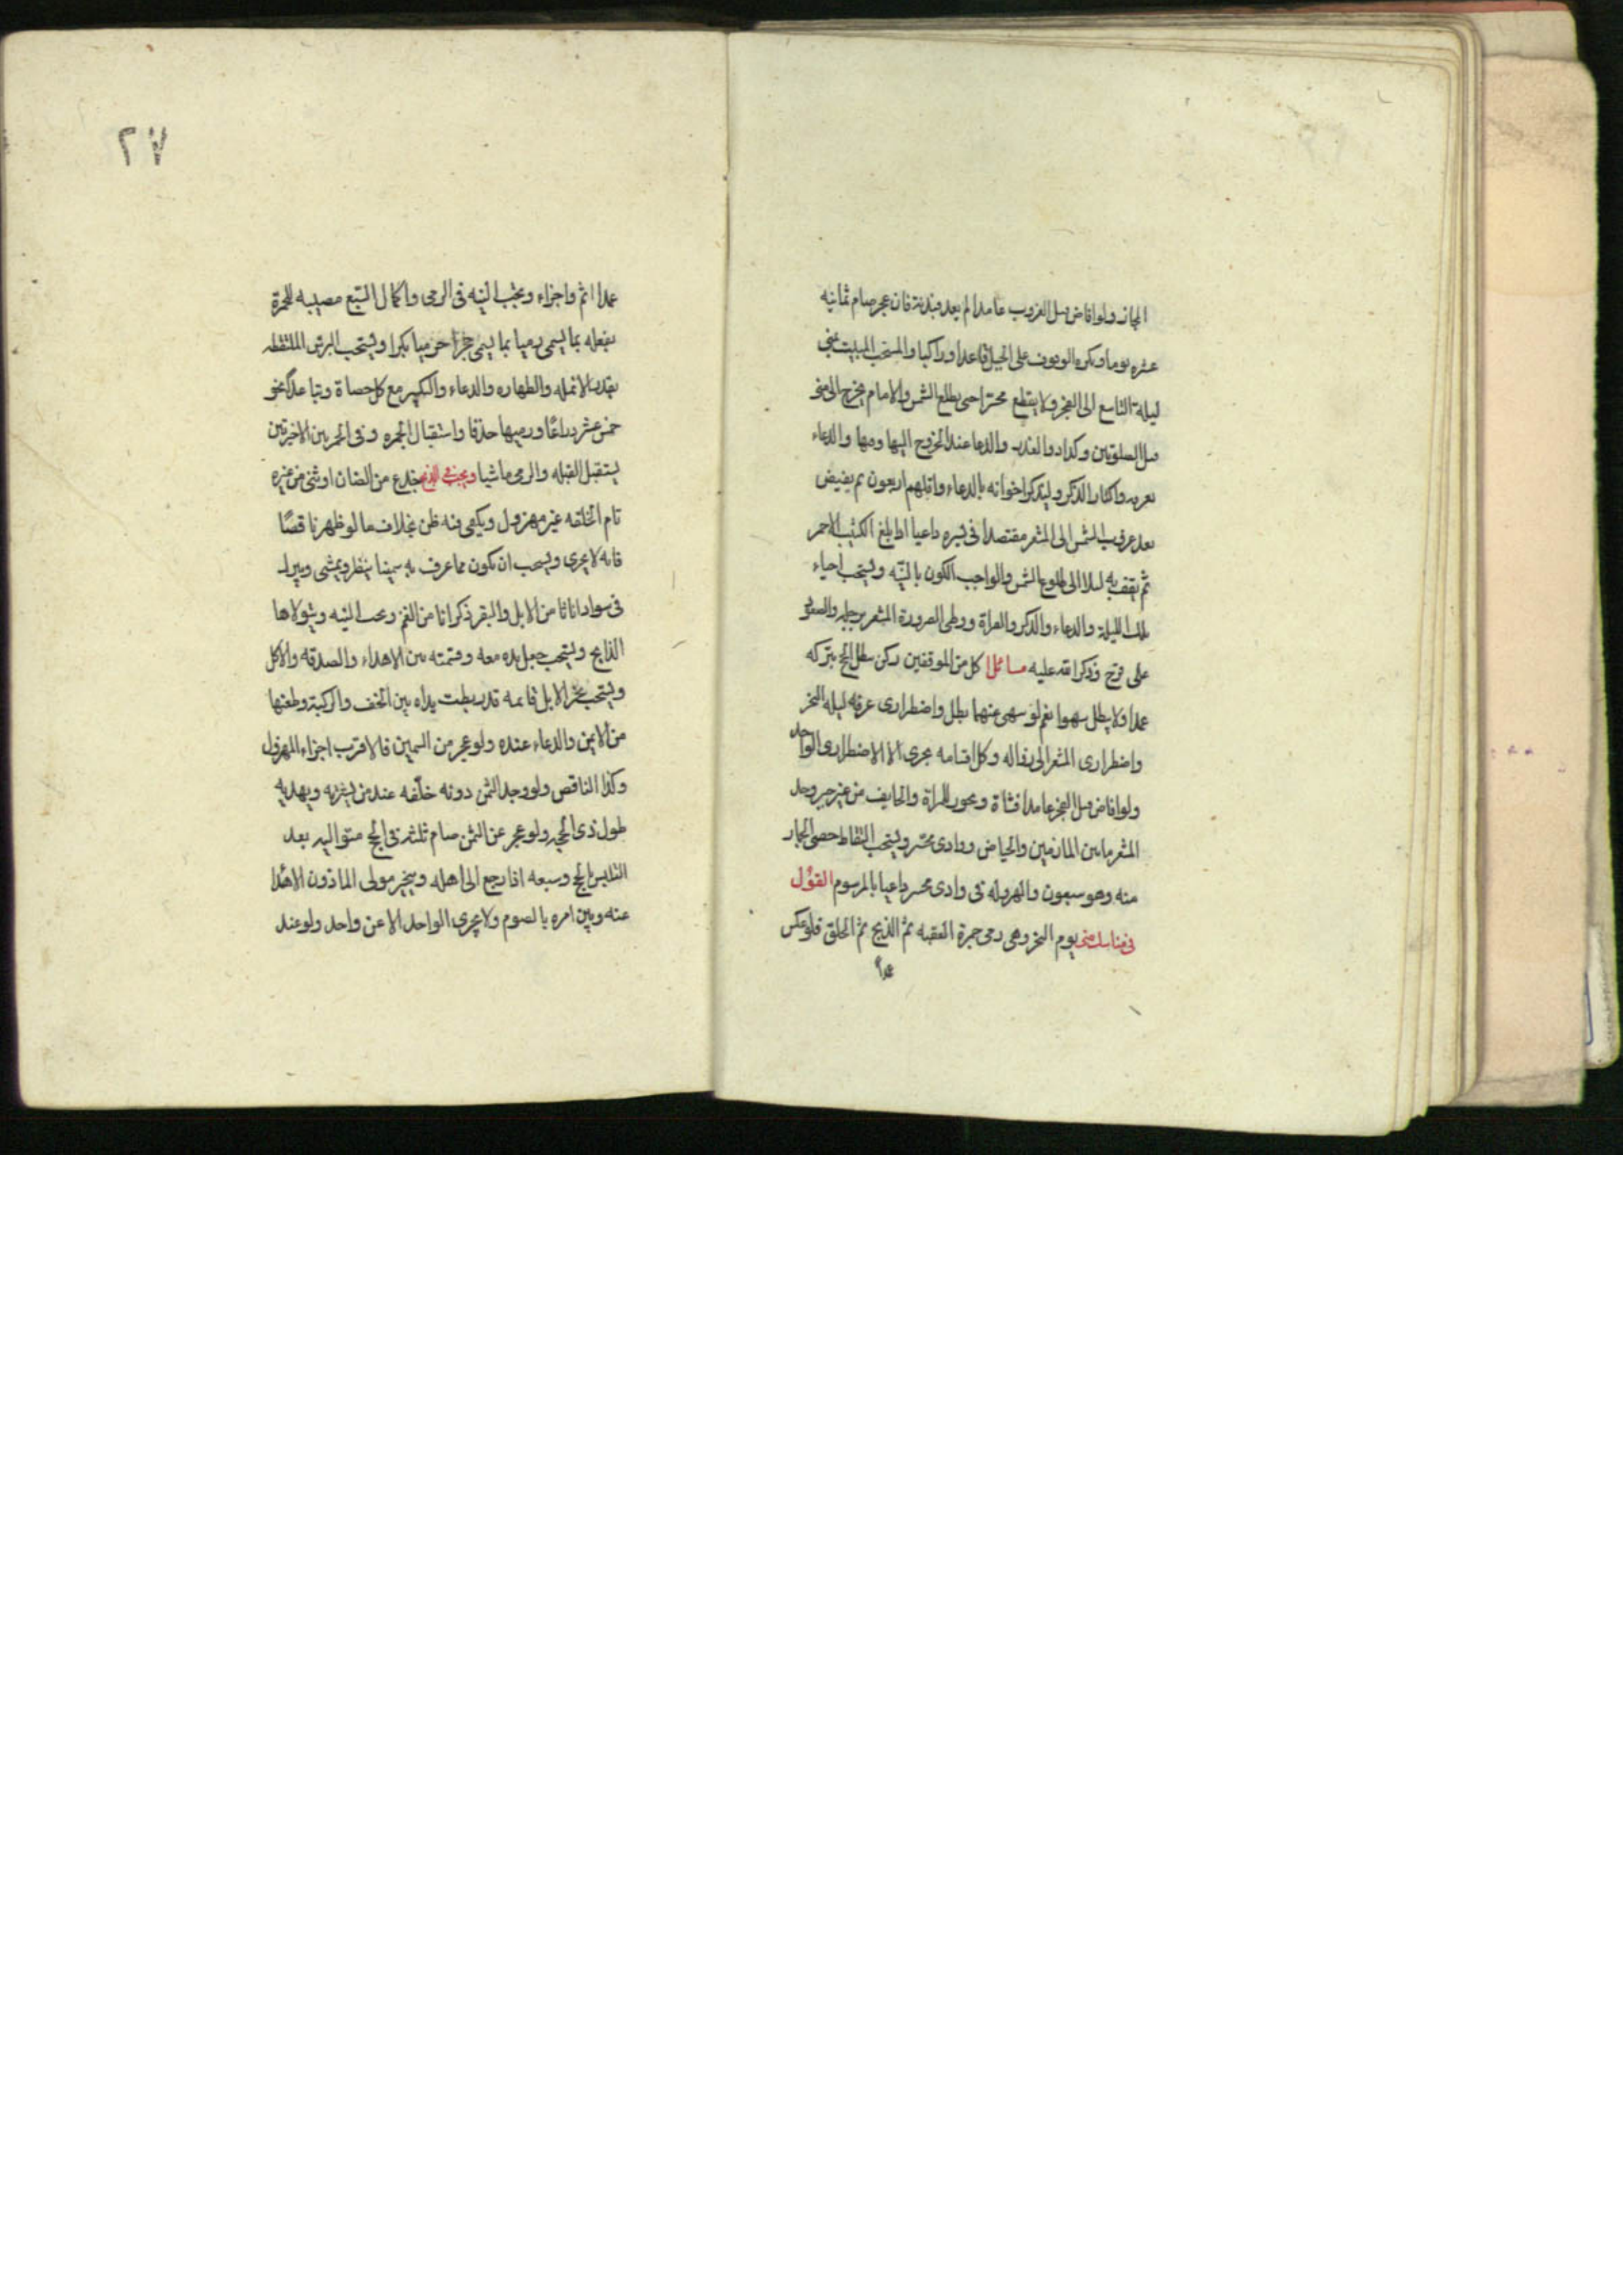 المجاز ولو افاض قبل الغروب عامدا ولم يعد فبدنة فان عجز صام ثمانيه
عشره يوما ويكره الوقوف على الجبل قاعدا وراكبا والمستحب المبيت بمنى
ليلة التاسع الى الفجر ولا يقطع محسرا حتى يطلع الشمس والامام يخرج الى منى
قبل الصلوتين وكذا ذو العذر والدعا عند الخروج اليها ومنها والدعاء
بعرفه واكثار الذكر وليذكر اخوانه بالدعاء واقلهم اربعون ثم يفيض
بعد غروب الشمس الى المشعر مقتصدا فى سيره داعيا اذا بلغ الكثيب الاحمر
ثم يقف به ليلا الى طلوع الشمس والواجب الكون بالنيّه ويستحب احياء
تلك الليلة والدعاء والذكر والقراة ووطى الصرورة المشعر برجليه والصعود
على قزح وذكر الله عليه مسائل كل من الموقفين ركن يبطل الحج بتركه
عمدا ولا يبطل سهوا نعم لو سهى عنهما بطل واضطرارى عرفه ليله النحر
واضطرارى المشعر الى زواله وكل اقسامه يجزى الا الاضطرارى الواحد
ولو افاض قبل الفجر عامدا فشاة ويجوز للمراة والخايف من غير جبر وحد
المشعر مابين المازمين والحياض ووادى محسّر ويستحب التقاط حصى الجمار
منه وهو سبعون والهرولة فى وادى محسر داعيا بالمرسوم القول
فى مناسك منى يوم النحر وهى رمى جمرة العقبه ثم الذبح ثم الحلق فلو عكس
عمدا
٢٧
عمدا اثم واجزاء ويجب النيه فى الرمى واكمال السبع مصيبه للجمرة
بفعله بما يسمى رميا بما يسمى حجرا حرميا بكرا ويستحب البرش الملتقطه
بقدر الانمله والطهاره والدعاء والتكبير مع كل حصاة وتباعد نحو
خمس عشر ذراعًا ورميها خذفا واستقبال الجمره وفى الجمرتين الاخيرتين
يستقبل القبله والرمى ماشيا ويجب فى الذبح جذع من الضان او ثنى من غيره
تام الخلقه غير مهزول ويكفى فيه ظن بخلاف ما لو ظهر ناقصًا
فانه لا يجزى ويستحب ان يكون مما عرف به سمينا ينظر ويمشى ويبرك
فى سواد اناثا من الابل والبقر ذكرانا من الغنم ويجب النيه ويتولاها
الذابح ويستحب جعل يده معه وقسمته بين الاهداء والصدقه والاكل
ويستحب نحر الابل قائمه قد ربطت يداه بين الخف والركبة وطعنها
من الايمن والدعاء عنده ولو عجز من السمين فالاقرب اجزاء المهزول
وكذا الناقص ولو وجد الثمن دونه خلّفه عند من يشتريه ويهديه
طول ذى الحجه ولو عجز عن الثمن صام ثلثه فى الحج متواليه بعد
التلبس بالحج وسبعه اذا رجع الى اهله ويتخير مولى الماذون الاهدا
عنه وبين امره بالصوم ولا يجزى الواحد الا عن واحد ولو عند